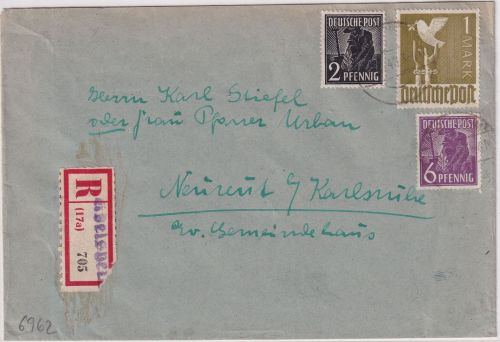 DEUTSCHE POST
2 PFENNIG
1
MARK
Deutsche Post
DEUTSCHE POST
6 PFENNIG
Herrn Karl Stiefel
oder Frau Pfarrer Urban
Neureut b/ Karlsruhe
Ev. Gemeindehaus
R
(17a)
705
6962